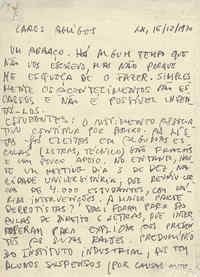 CAROS AMIGOS LX, 15/12/970
UM ABRAÇO. HÁ ALGUM TEMPO QUE
NÃO VOS ESCREVO, MAS NÃO PORQUE
ME ESQUEÇA DE O FAZER. SIMPLES
MENTE OS ACONTECIMENTOS SÃO ES
CASSOS E NÃO É POSSÍVEL INVEN
TÁ-LOS.
ESTUDANTES: O MOVIMENTO ASSOCIA
TIVO CONTINUA POR BAIXO. AS
ELEITAS COM ALGUMAS ES
COLAS (LETRAS, TÉCNICO) TÊM FRANCAS
E UM POUCO APOIO. NO ENTANTO, HOU
VE UM MEETING DIA 3 DE DEZ. NA
CIDADE UNIVERSITÁRIA, QUE REUNIU CER
CA DE 4.000 ESTUDANTES, COM VÁ
RIAS INTERVENÇÕES. A MAIOR PARTE
DERROTISTAS? DALI FORAM PARA AS
AULAS DE DIREITO E LETRAS, QUE INTER
ROMPERAM PARA EXPLICAR OS
POR DUAS RAZÕES. PREDOMÍNIO
DO INSTITUTO INDUSTRIAL, QUE TEM
ALUNOS SUSPENSOS (POR CAUSAS